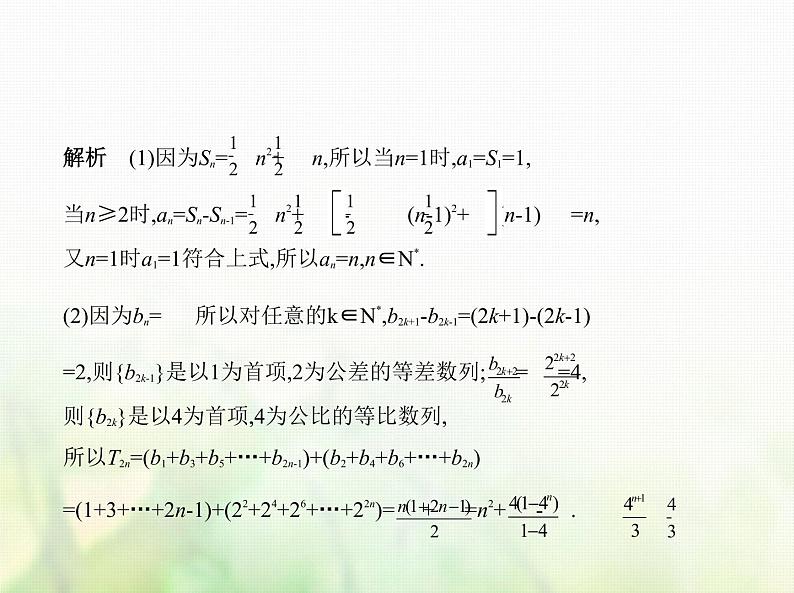 解析 (1)因为Sₙ=1/2 n²+1/2 n,所以当n=1时,a₁=S₁=1,
当n≥2时,aₙ=Sₙ-Sₙ₋₁=1/2 n²+1/2 [1/2 (n-1)²+1/2 (n-1)] =n,
又n=1时a₁=1符合上式,所以aₙ=n,n∈N*.
(2)因为bₙ= 所以对任意的k∈N*,b₂ₖ₊₁-b₂ₖ₋₁=(2k+1)-(2k-1)
=2,则{b₂ₖ₋₁}是以1为首项,2为公差的等差数列; b₂ₖ₊₂/b₂ₖ = 2^(2k+2)/2^(2k) =4,
则{b₂ₖ}是以4为首项,4为公比的等比数列,
所以T₂ₙ=(b₁+b₃+b₅+…+b₂ₙ₋₁)+(b₂+b₄+b₆+…+b₂ₙ)
=(1+3+…+2n-1)+(2²+2⁴+2⁶+…+2²ⁿ)= n(1+2n-1)/2 + 4(1-4ⁿ)/(1-4) =n²+ 4ⁿ⁺¹/3 - 4/3 .